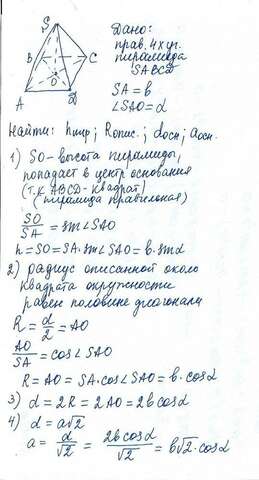 S
B
C
A
O
D
Дано:
прав. 4х уг.
пирамида
SABCD
SA = b
∠SAO = α
Найти: hпир; Rопис.; dосн; aосн.
1) SO - высота пирамиды,
попадает в центр основания
(т.к. ABCD - квадрат)
(пирамида правильная)
SO/SA = sin∠SAO
h = SO = SA·sin∠SAO = b·sinα
2) радиус описанной около
квадрата окружности
равен половине диагонали
R = d/2 = AO
AO/SA = cos∠SAO
R = AO = SA·cos∠SAO = b·cosα
3) d = 2R = 2AO = 2b cosα
4) d = a√2
a = d/√2 = 2b cosα/√2 = b√2·cosα